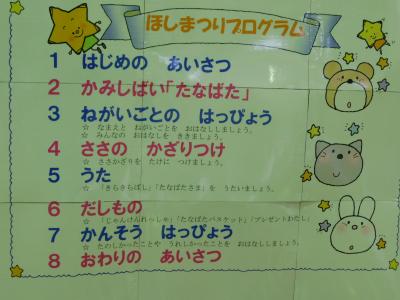 ほしまつりプログラム
1 はじめの あいさつ
2 かみしばい「たなばた」
3 ねがいごとの はっぴょう
☆ なまえと ねがいごとを おはなししましょう。
☆ みんなの おはなしを ききましょう。
4 ささの かざりつけ
☆ ささかざりを たけに つけましょう。
5 うた
☆ 「きらきらぼし」「たなばたさま」を うたいましょう。
6 だしもの
☆ 「じゃんけんれっしゃ」「たなばたバスケット」「プレゼントわたし」
7 かんそう はっぴょう
☆ たのしかったことや うれしかったことを おはなししましょう。
8 おわりの あいさつ